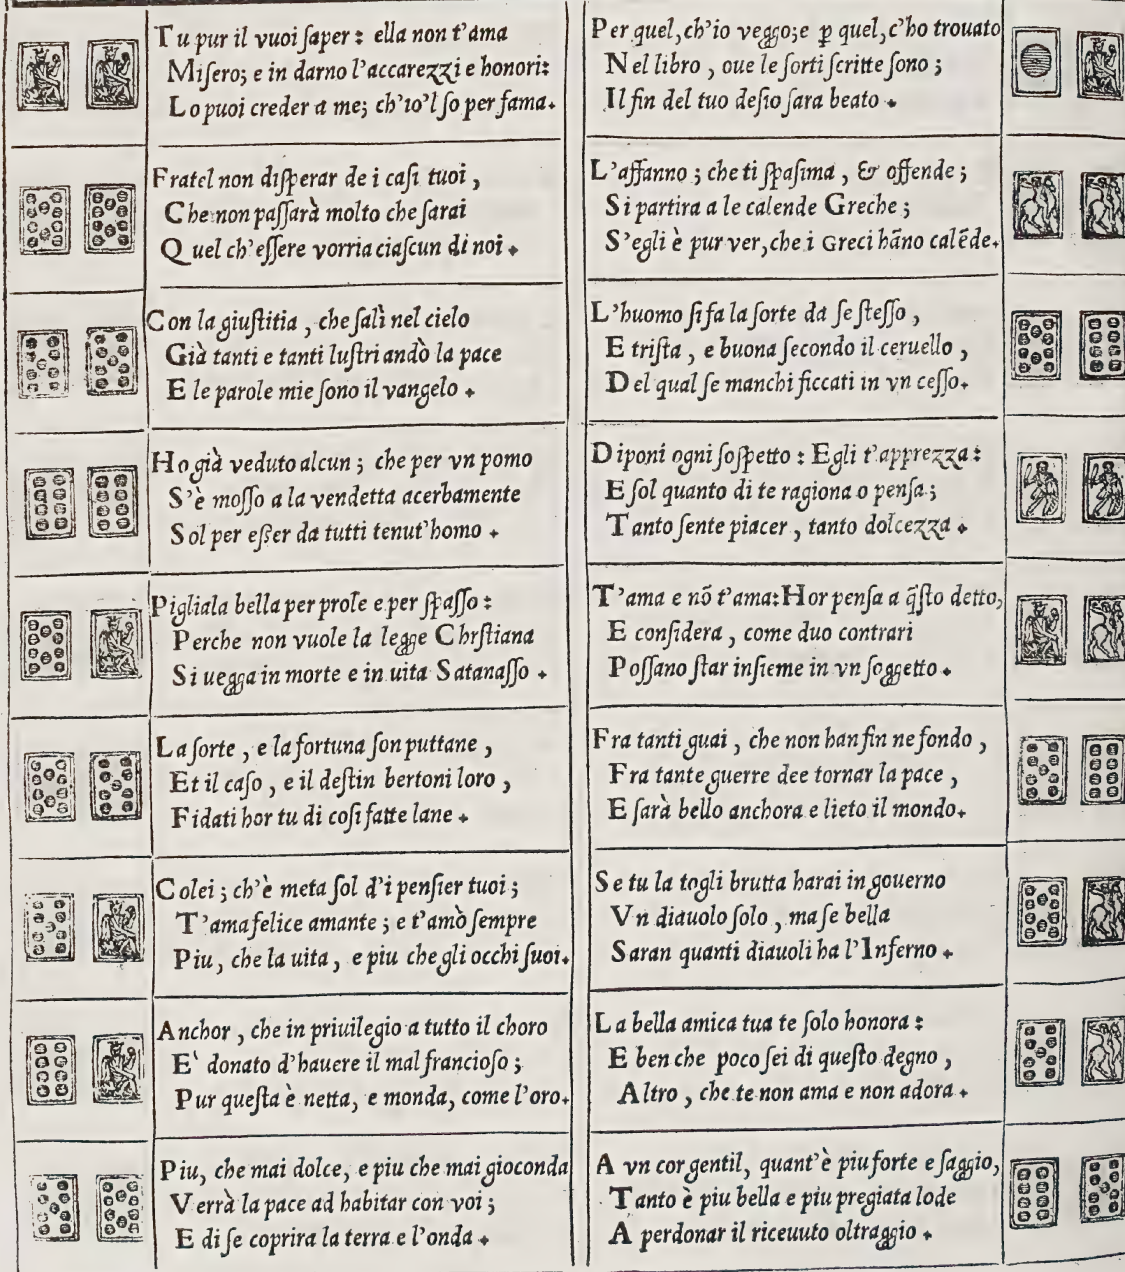 Tu pur il vuoi ſaper: ella non t'ama
Miſero; e in darno l'accarezzi e honori:
Lo puoi creder a me; ch'io'l ſo per fama.
Fratel non diſperar de i caſi tuoi,
Che non paſſarà molto che ſarai
Quel ch'eſſere vorria ciaſcun di noi.
Con la giuſtitia, che ſalì nel cielo
Già tanti e tanti luſtri andò la pace
E le parole mie ſono il vangelo.
Ho già veduto alcun; che per vn pomo
S'è moſſo a la vendetta acerbamente
Sol per eſſer da tutti tenut'homo.
Pigliala bella per prole e per ſpaſſo:
Perche non vuole la legge Chrſtiana
Si uegga in morte e in uita Satanaſſo.
La ſorte, e la fortuna ſon puttane,
Et il caſo, e il deſtin bertoni loro,
Fidati hor tu di coſi fatte lane.
Colei; ch'è meta ſol d'i penſier tuoi;
T'ama felice amante; e t'amò ſempre
Piu, che la uita, e piu che gli occhi ſuoi.
Anchor, che in priuilegio a tutto il choro
E' donato d'hauere il mal francioſo;
Pur queſta è netta, e monda, come l'oro.
Piu, che mai dolce, e piu che mai gioconda
Verrà la pace ad habitar con voi;
E di ſe coprira la terra e l'onda.
Per quel, ch'io veggo; e ꝑ quel, c'ho trouato
Nel libro, oue le ſorti ſcritte ſono;
Il fin del tuo deſio ſara beato.
L'affanno; che ti ſpaſima, & offende;
Si partira a le calende Greche;
S'egli è pur ver, che i Greci hāno calēde.
L'huomo ſi fa la ſorte da ſe ſteſſo,
E triſta, e buona ſecondo il ceruello,
Del qual ſe manchi ficcati in vn ceſſo.
Diponi ogni ſoſpetto: Egli t'apprezza:
E ſol quanto di te ragiona o penſa;
Tanto ſente piacer, tanto dolcezza.
T'ama e nō t'ama: Hor penſa a q̄ſto detto,
E conſidera, come duo contrari
Poſſano ſtar inſieme in vn ſoggetto.
Fra tanti guai, che non han fin ne fondo,
Fra tante guerre dee tornar la pace,
E ſarà bello anchora e lieto il mondo.
Se tu la togli brutta harai in gouerno
Vn diauolo ſolo, ma ſe bella
Saran quanti diauoli ha l'Inferno.
La bella amica tua te ſolo honora:
E ben che poco ſei di queſto degno,
Altro, che te non ama e non adora.
A vn cor gentil, quant'è piu forte e ſaggio,
Tanto è piu bella e piu pregiata lode
A perdonar il riceuuto oltraggio.